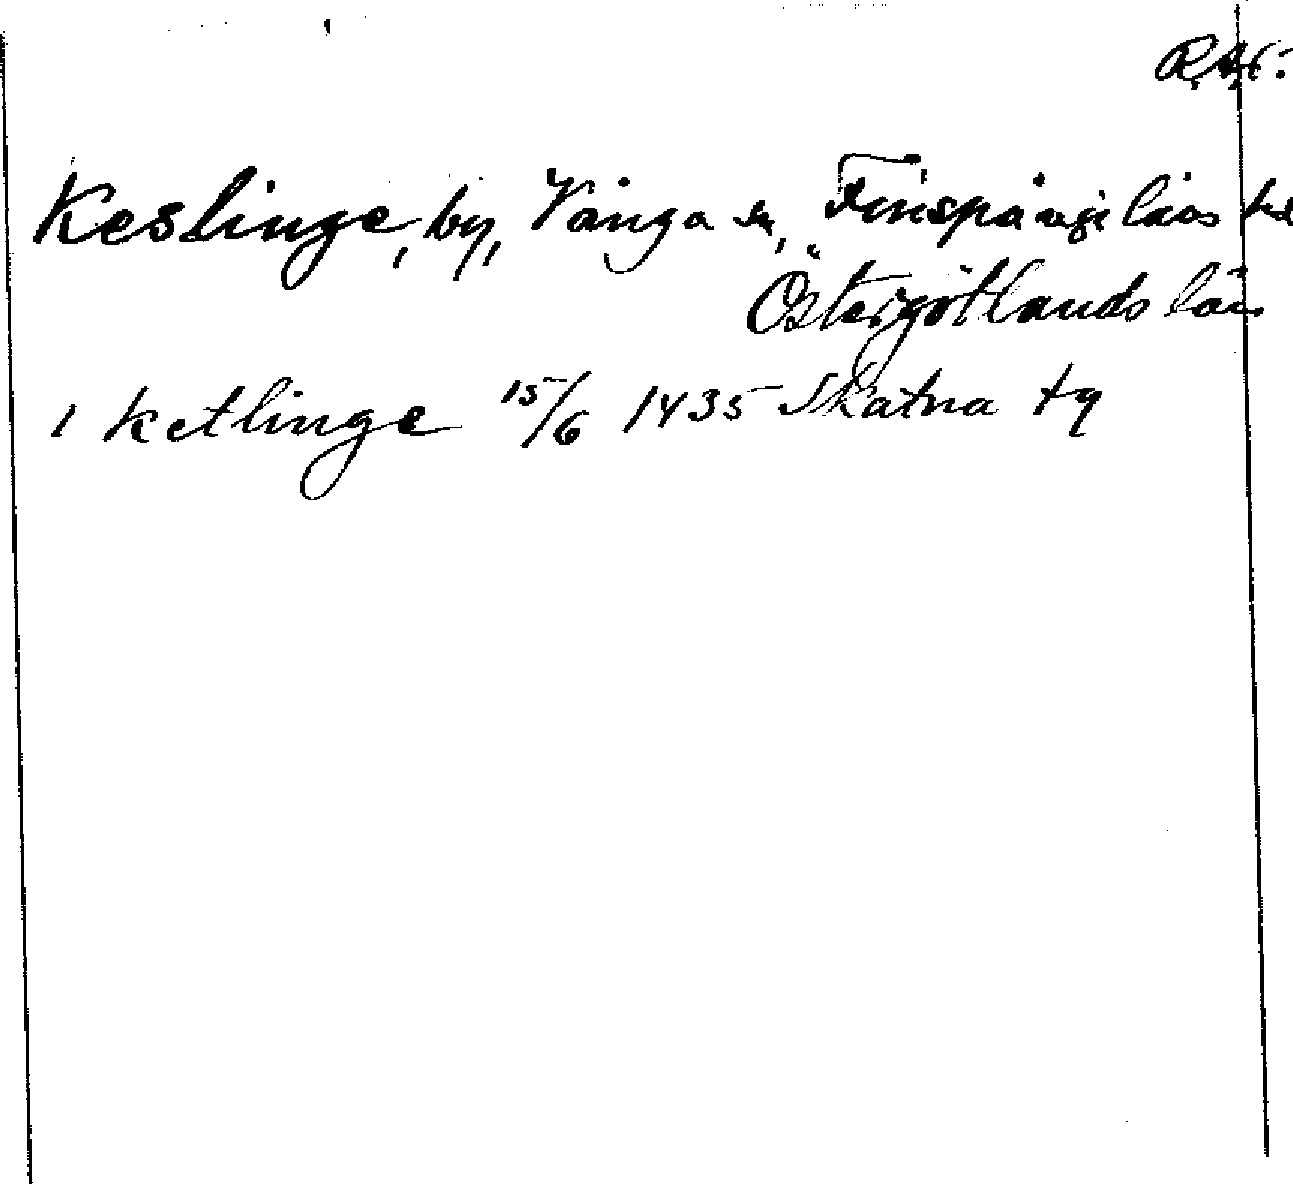 Keslinge, by, Vånga sn, Finspånga läns hd
Östergötlands län
1 ketlinge 15/6 1435 Skatna tg